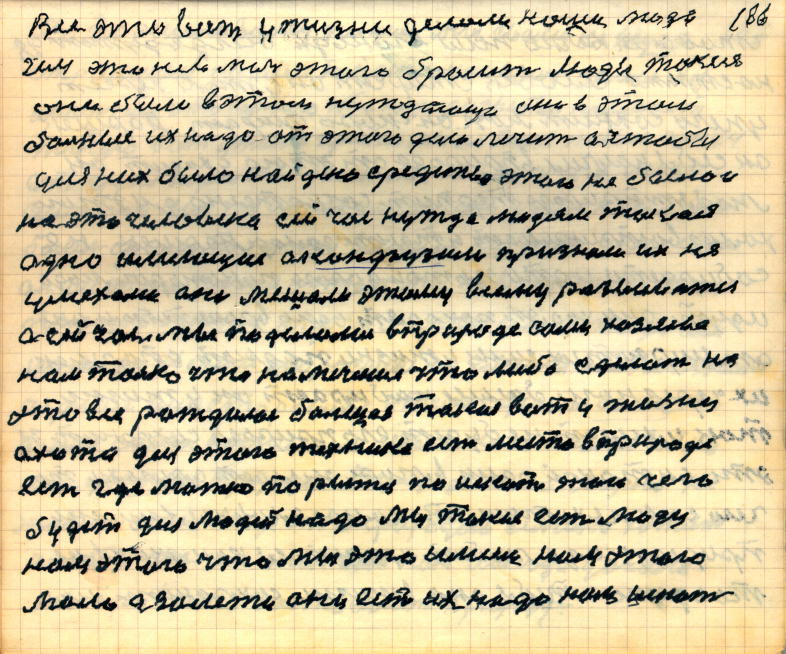 Все это вот у жизни делали наши люди 186
этого бросит люди такия
они были в этом нуждающи они в этом
больные их надо от этого дела лечит а чтобы
для них было найдено средство этого не было и
на это человека сей час нужда людям такая
одно имеющие признали их не
они мешали этому всему развиват
а сей час мы поделали в природе сами хозяева
нам толко что намечил что либо сделат на
это все рождилос болщое такое вот у жизни
охота для этого техника ест место в природе
ест где можно по рытця по искат этого чего
будет для людей надо мы такие ест люди
нам этого что мы это имеим нам этого
мало а золото они ест их надо нам искат